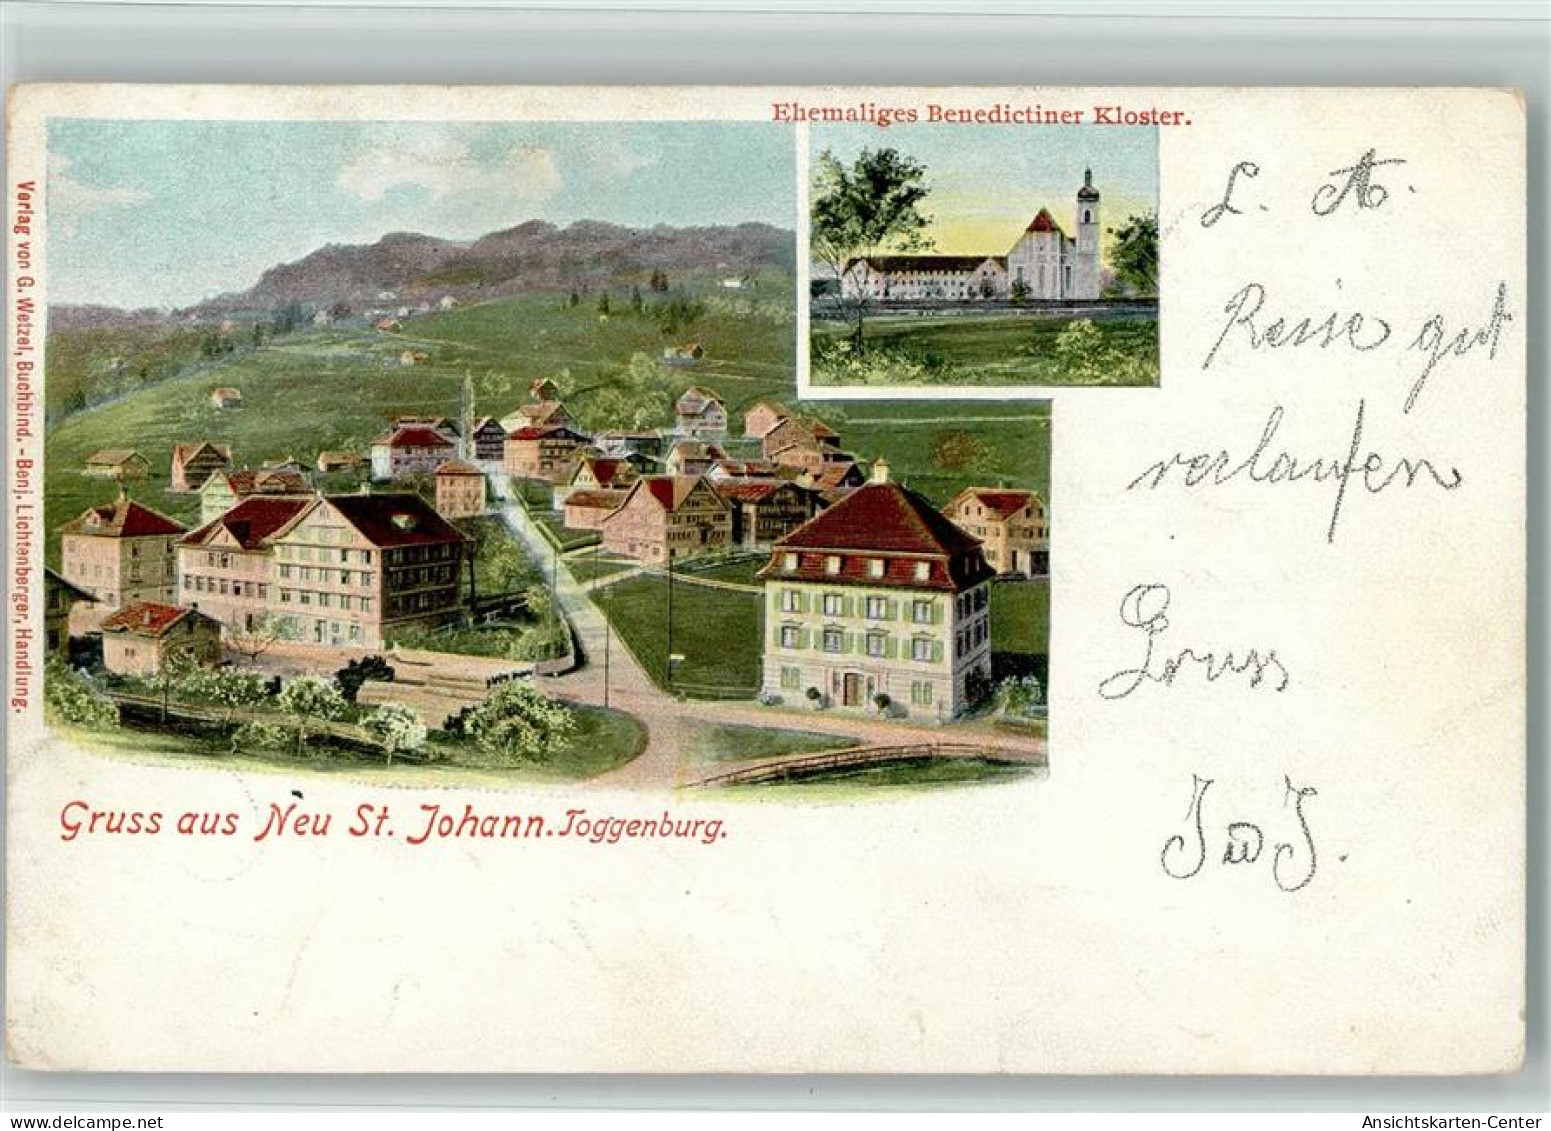 Ehemaliges Benedictiner Kloster.
Verlag von G. Wetzel, Buchbind. - Benj. Lichtenberger, Handlung.
L. A.
Reise gut
verlaufen
Gruss
J und J.
Gruss aus Neu St. Johann. Toggenburg.
delcampe.net
Ansichtskarten-Center